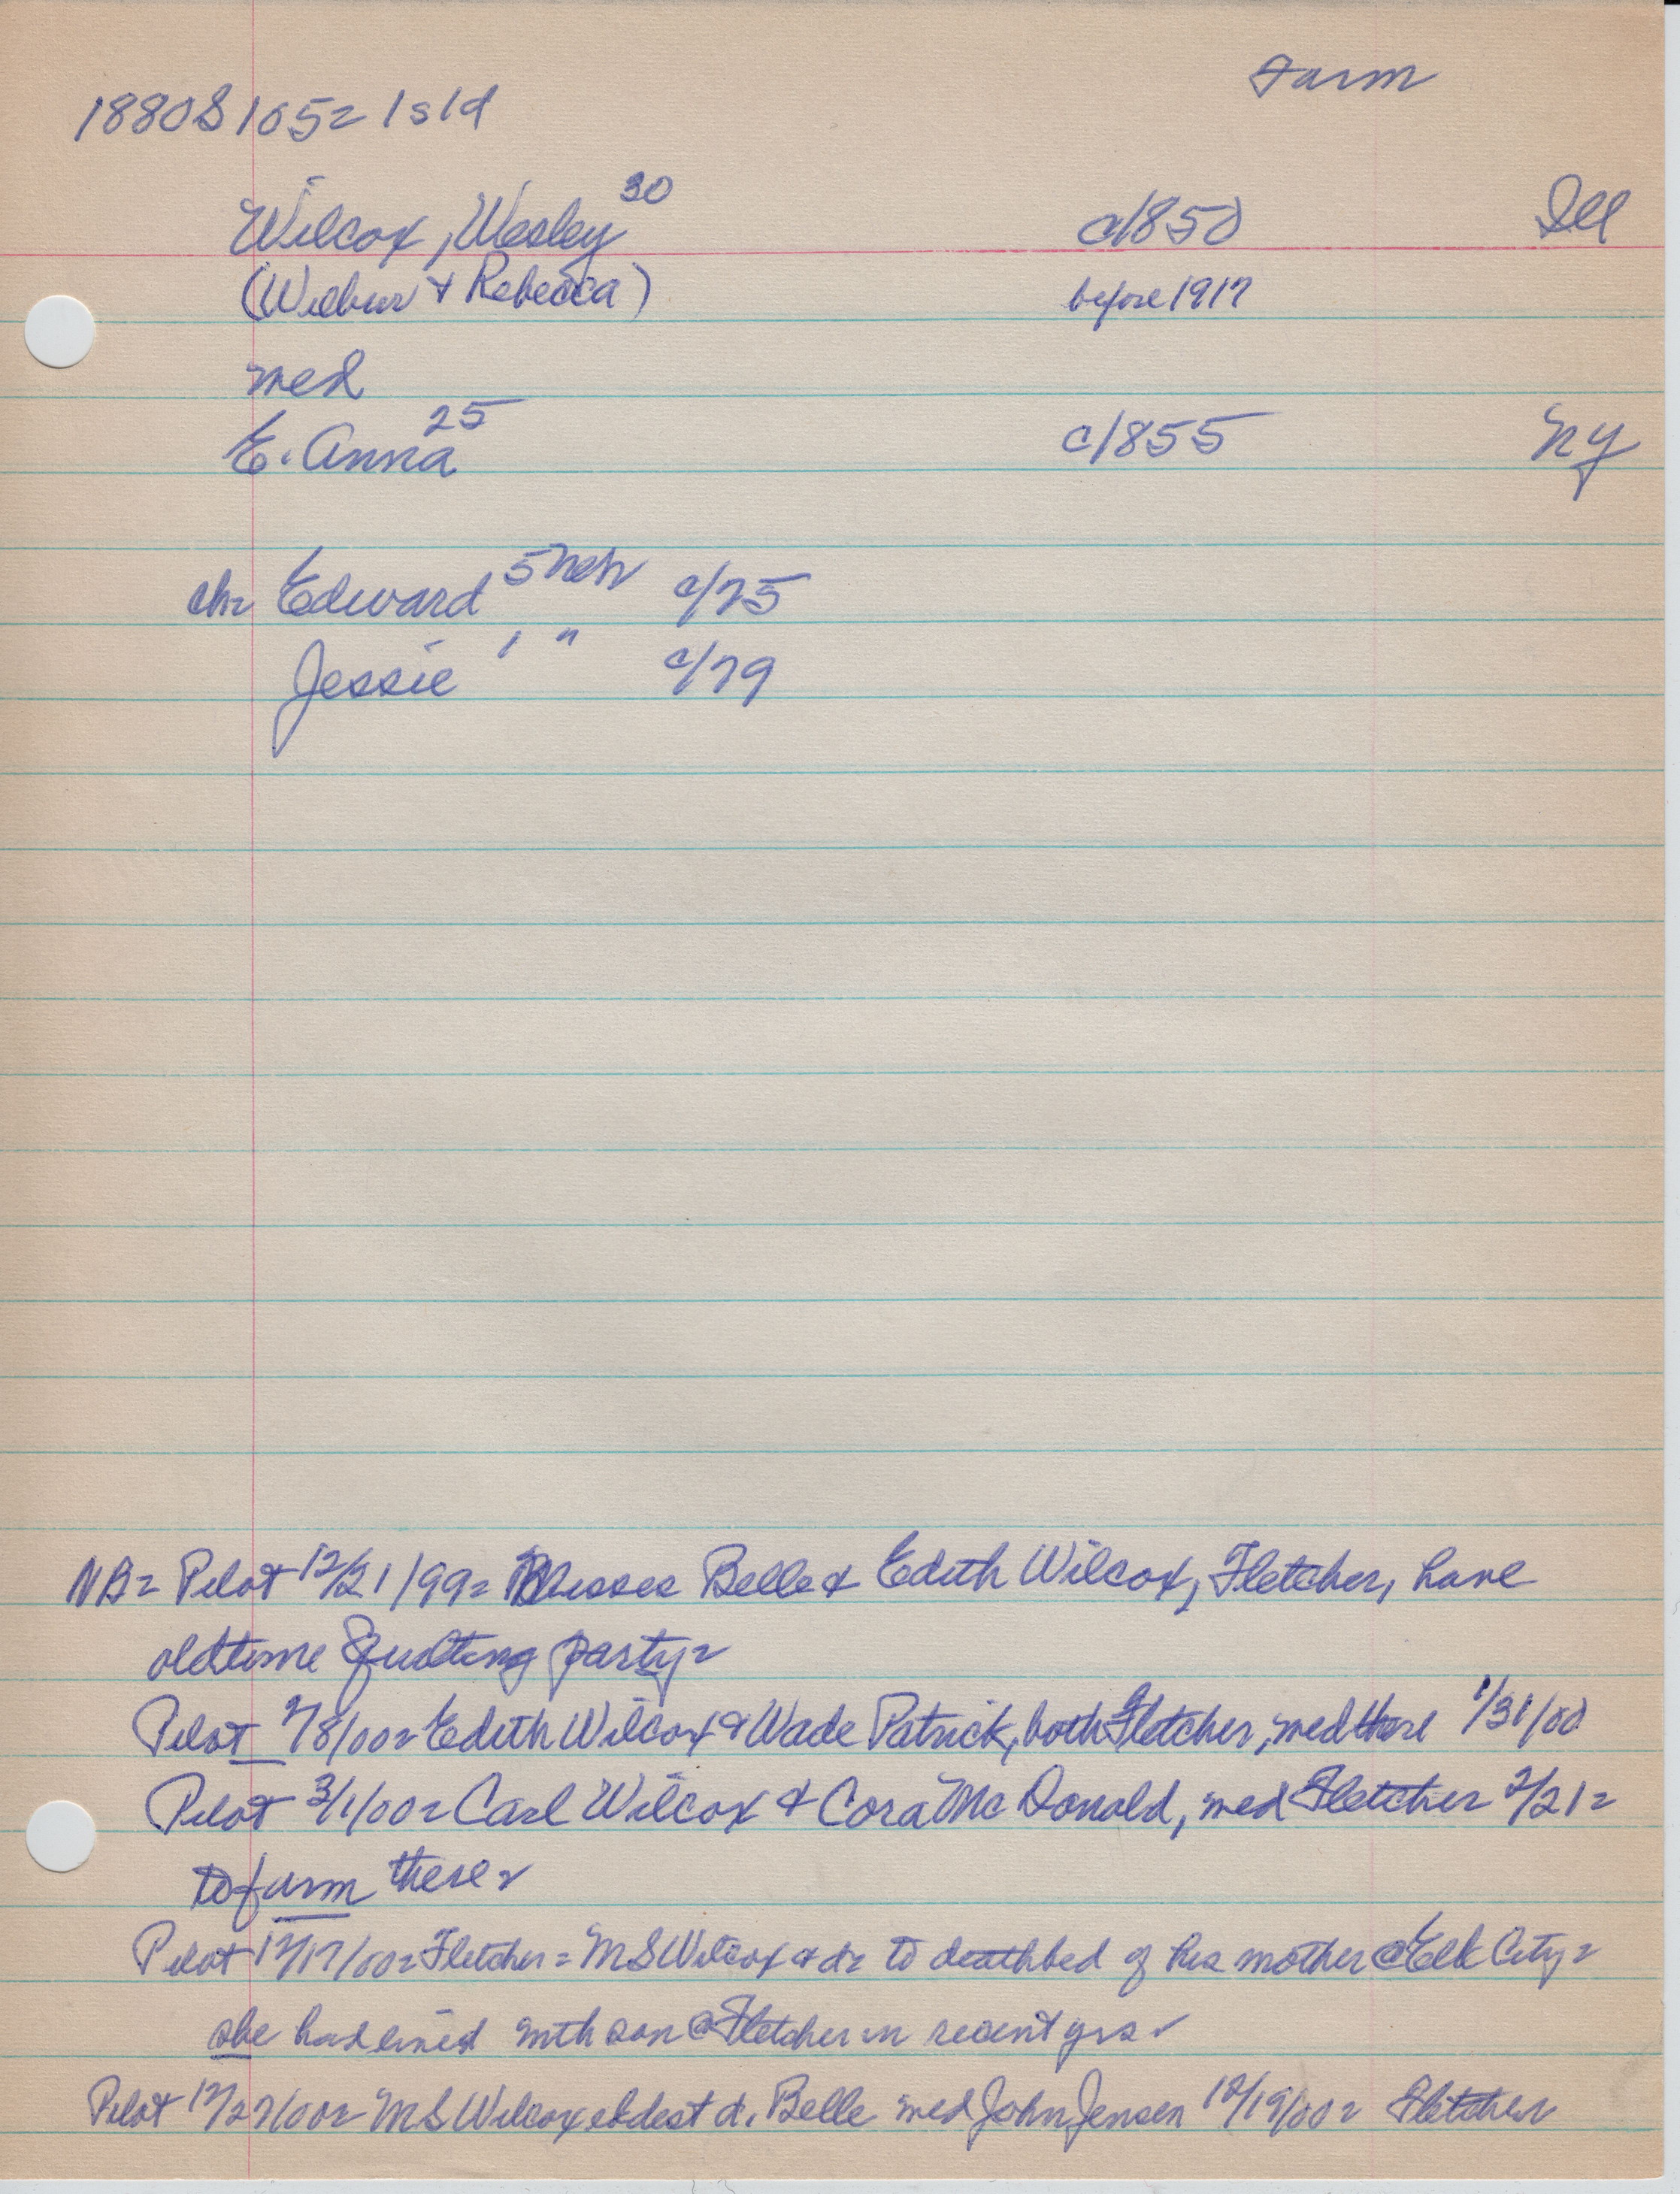 Farm
1880S 105= Isld
Wilcox, Wesley 30 c1850 Ill
(Wilbur & Rebecca) before 1917
med
E. Anna 25 c1855 NY
ch= Edward 5 Neb c/75
Jessie 1 " c/79
NB= Pilot 12/21/99= Misses Belle & Edith Wilcox, Fletcher, have
oldtime quilting party=
Pilot 2/8/00= Edith Wilcox & Wade Patrick, both Fletcher, med there 1/31/00
Pilot 3/1/00= Carl Wilcox & Cora McDonald, med Fletcher 2/21=
to farm there=
Pilot 12/17/00= Fletcher= MS Wilcox & d= to deathbed of his mother @ Elk City=
she had lived with son @ Fletcher in recent yrs=
Pilot 12/27/00= MS Wilcox eldest d. Belle med John Jensen 12/19/00= Fletcher